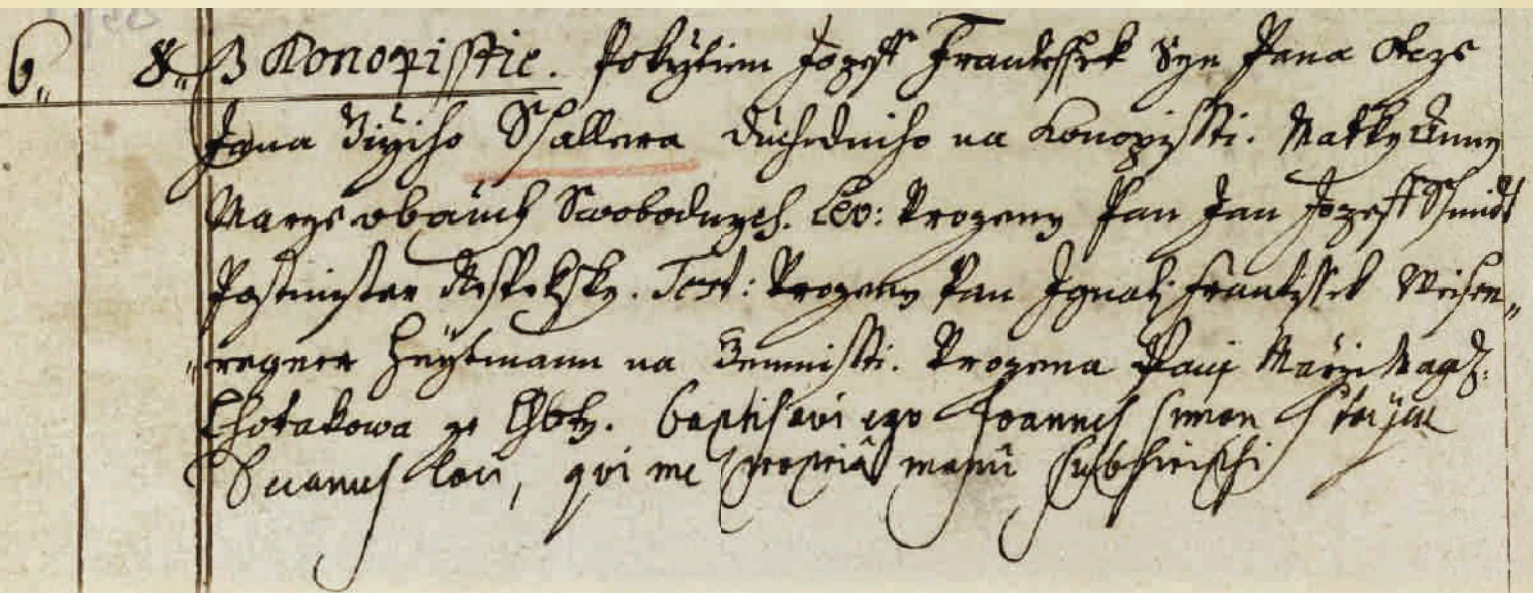 6,, 8,, Z Konopisstie. Pokrztien Jozeff Frantissek Syn Pana Otcze
Jana Girziho Schallera Duchodniho na Konopissti. Matky Anny
Marye obauch Swobodnych. Lev: Urozeny Pan Jan Jozeff Schmidt
Postmister Test: Urozeny Pan Ignatz Frantissek
Heytmann na Urozena Pani Marzi Magd:
Chotakowa ze Lhoty. baptisavi ego Joannes Simon
Decanus loci, qvi me propriâ manu subscripsi